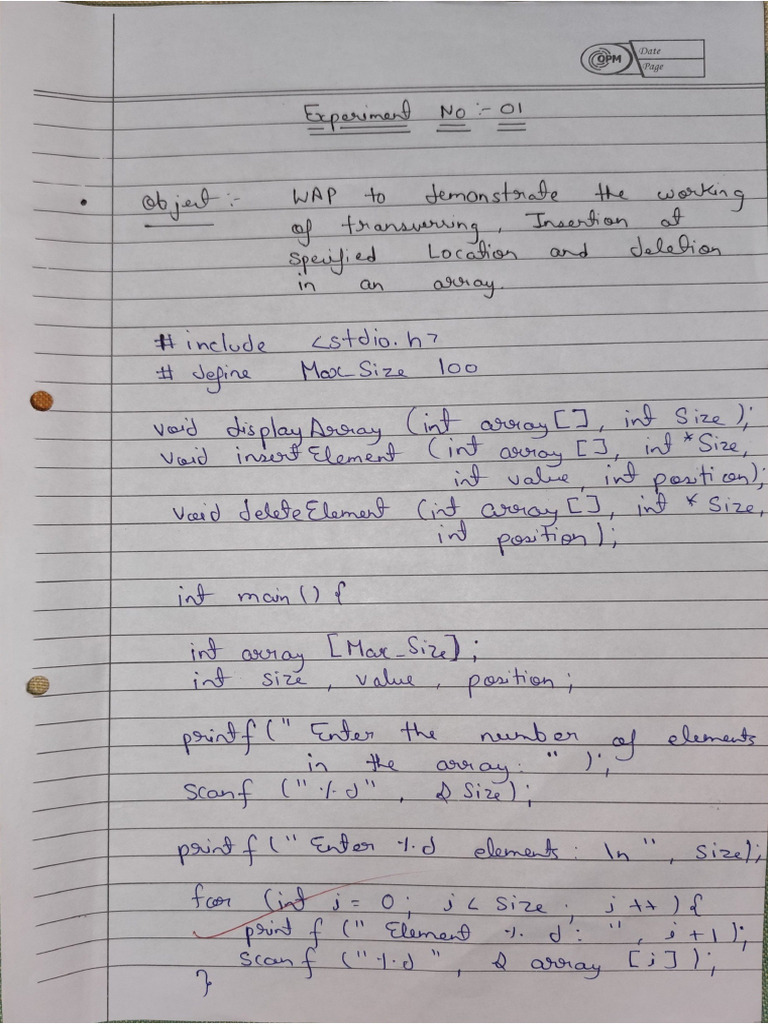 QPM
Date
Page
Experiment No :- 01
Object :- WAP to demonstrate the working
of transverring, Insertion at
specified Location and deletion
in an array.
# include <stdio.h>
# define Max_Size 100
void displayArray (int array [], int Size);
void insertElement (int array [], int *Size,
int value, int position);
void deleteElement (int array [], int * Size,
int position);
int main() {
int array [Max_Size];
int size, value, position;
printf(" Enter the number of elements
in the array: " );
scanf ("%d", & Size);
printf (" Enter %d elements: \n ", Size);
for (int i = 0; i < Size; i ++) {
print f (" Element % d : ", i +1);
scanf ("%d ", & array [i]);
}